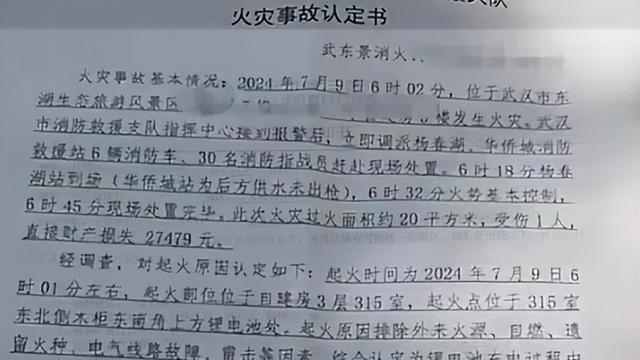 火灾事故认定书
武东景消火
火灾事故基本情况：2024年7月9日6时02分，位于武汉市东
湖生态旅游风景区 楼发生火灾。武汉
市消防救援支队指挥中心接到报警后，立即调派杨春湖、华侨城消防
救援站6辆消防车、30名消防指战员赶赴现场处置。6时18分杨春
湖站到场（华侨城站为后方供水未出枪），6时32分火势基本控制，
6时45分现场处置完毕。此次火灾过火面积约20平方米，受伤1人，
直接财产损失27479元。
经调查，对起火原因认定如下：起火时间为2024年7月9日6
时01分左右，起火部位位于自建房3层315室，起火点位于315室
东北侧木柜东南角上方锂电池处。起火原因排除外来火源、自燃、遗
留火种、电气线路故障、雷击等因素，综合认定为锂电池充电过程中